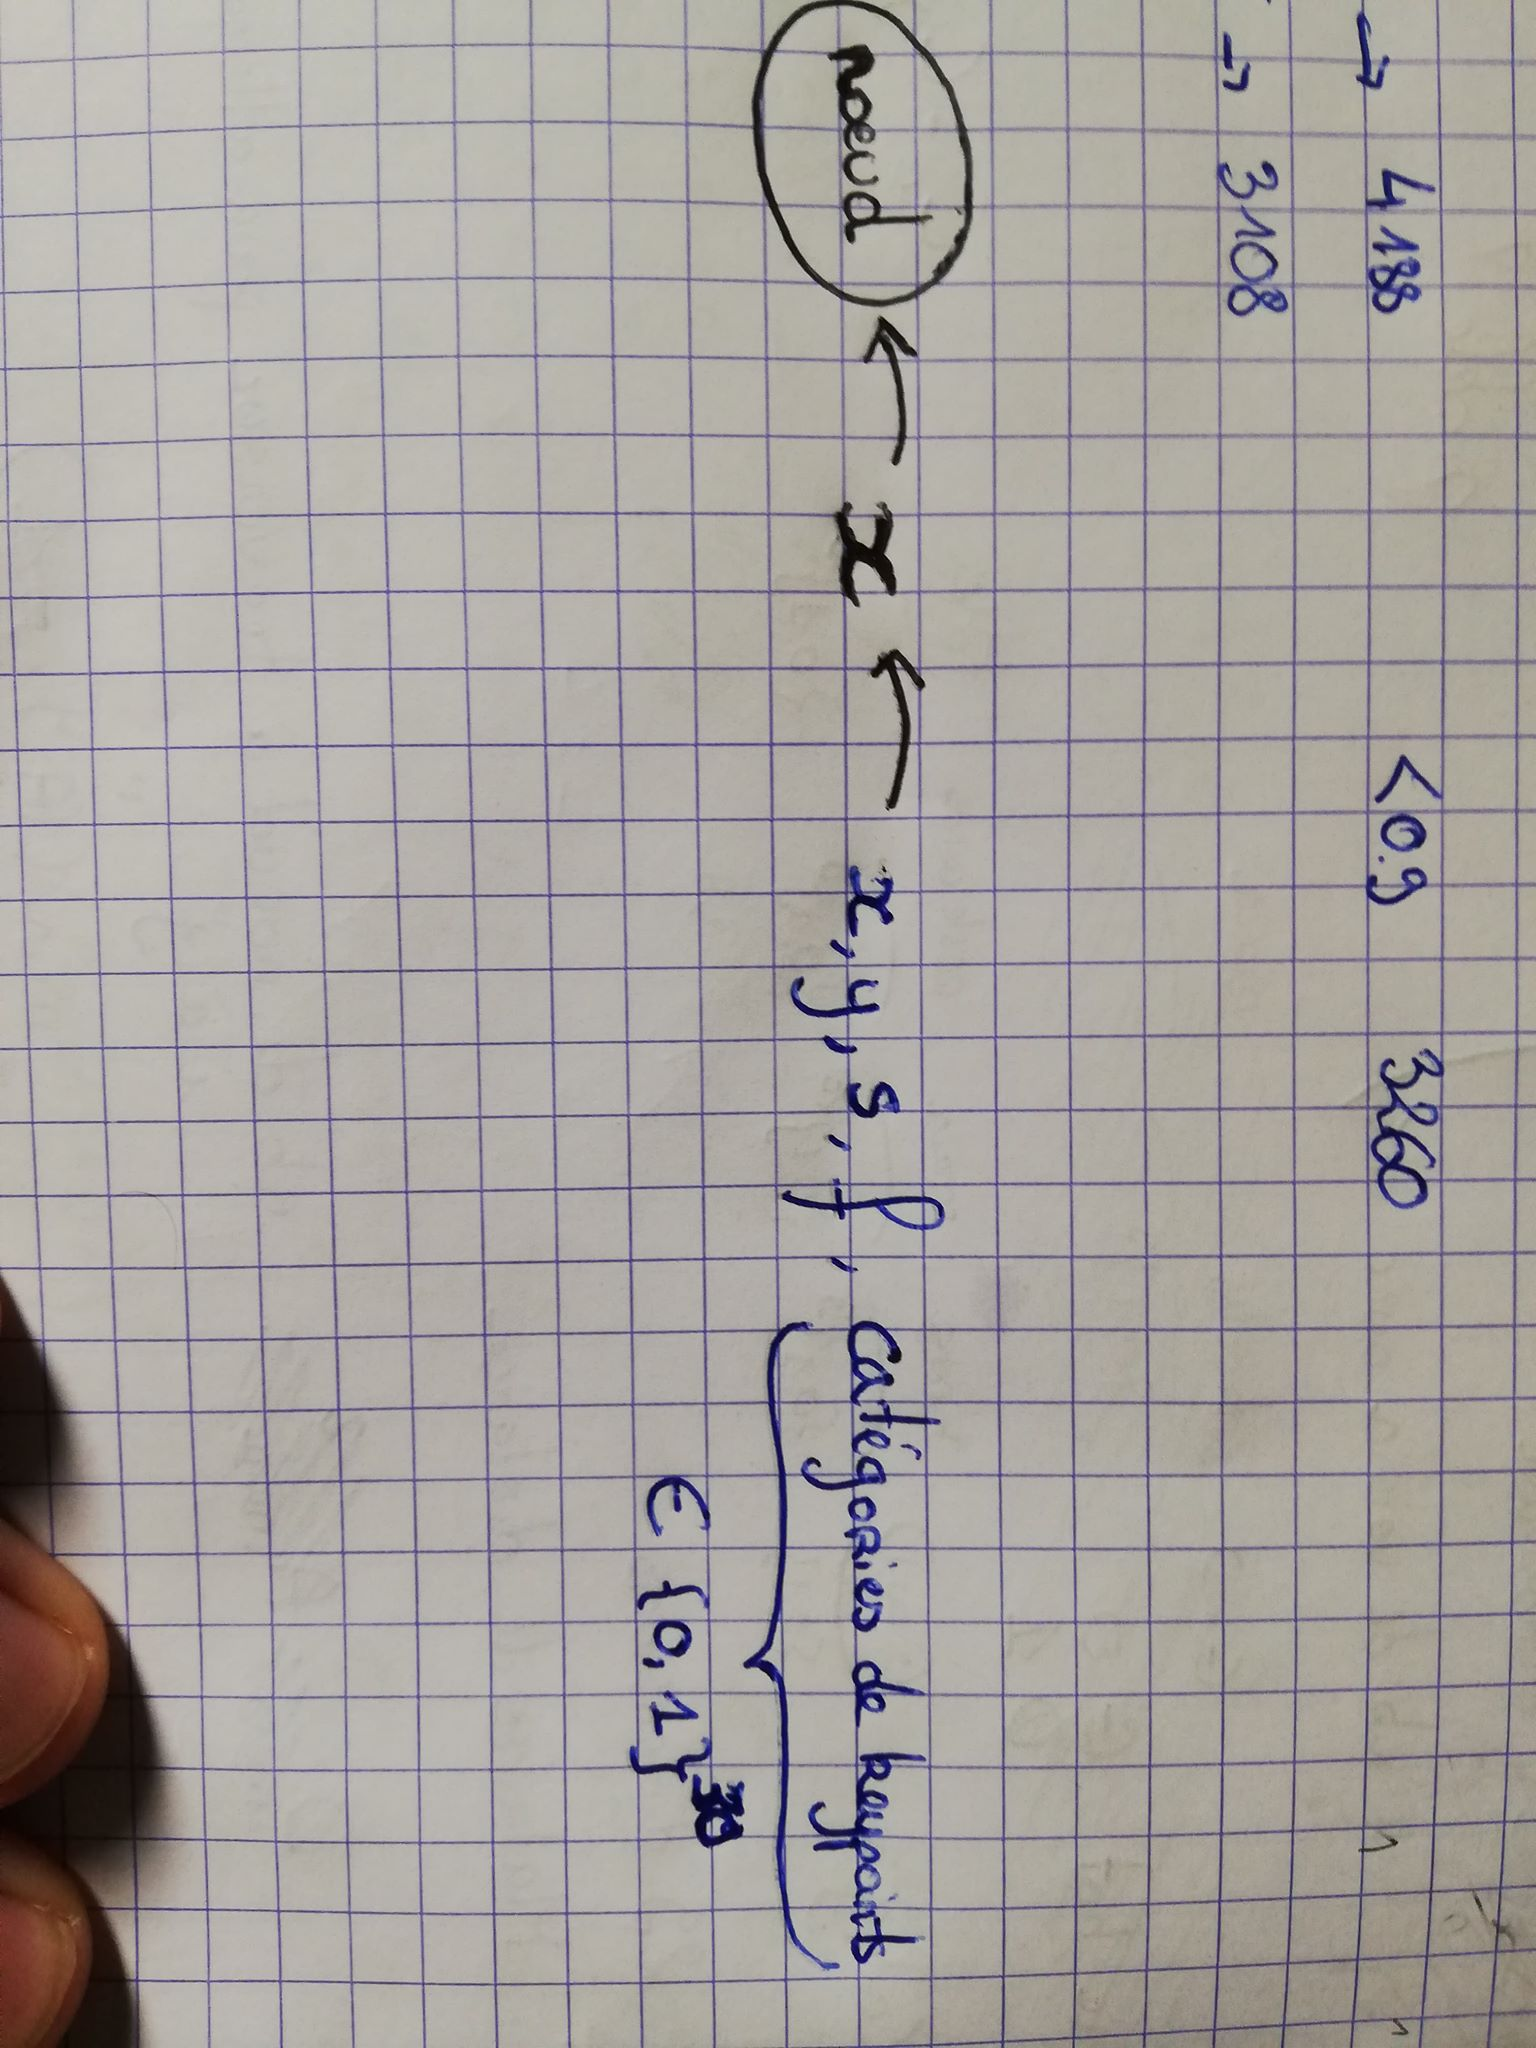 → 4188 < 0.9 3260
→ 3108
noeud ← x ← x, y, s, f, catégories de keypoints
∈ {0, 1}³⁰